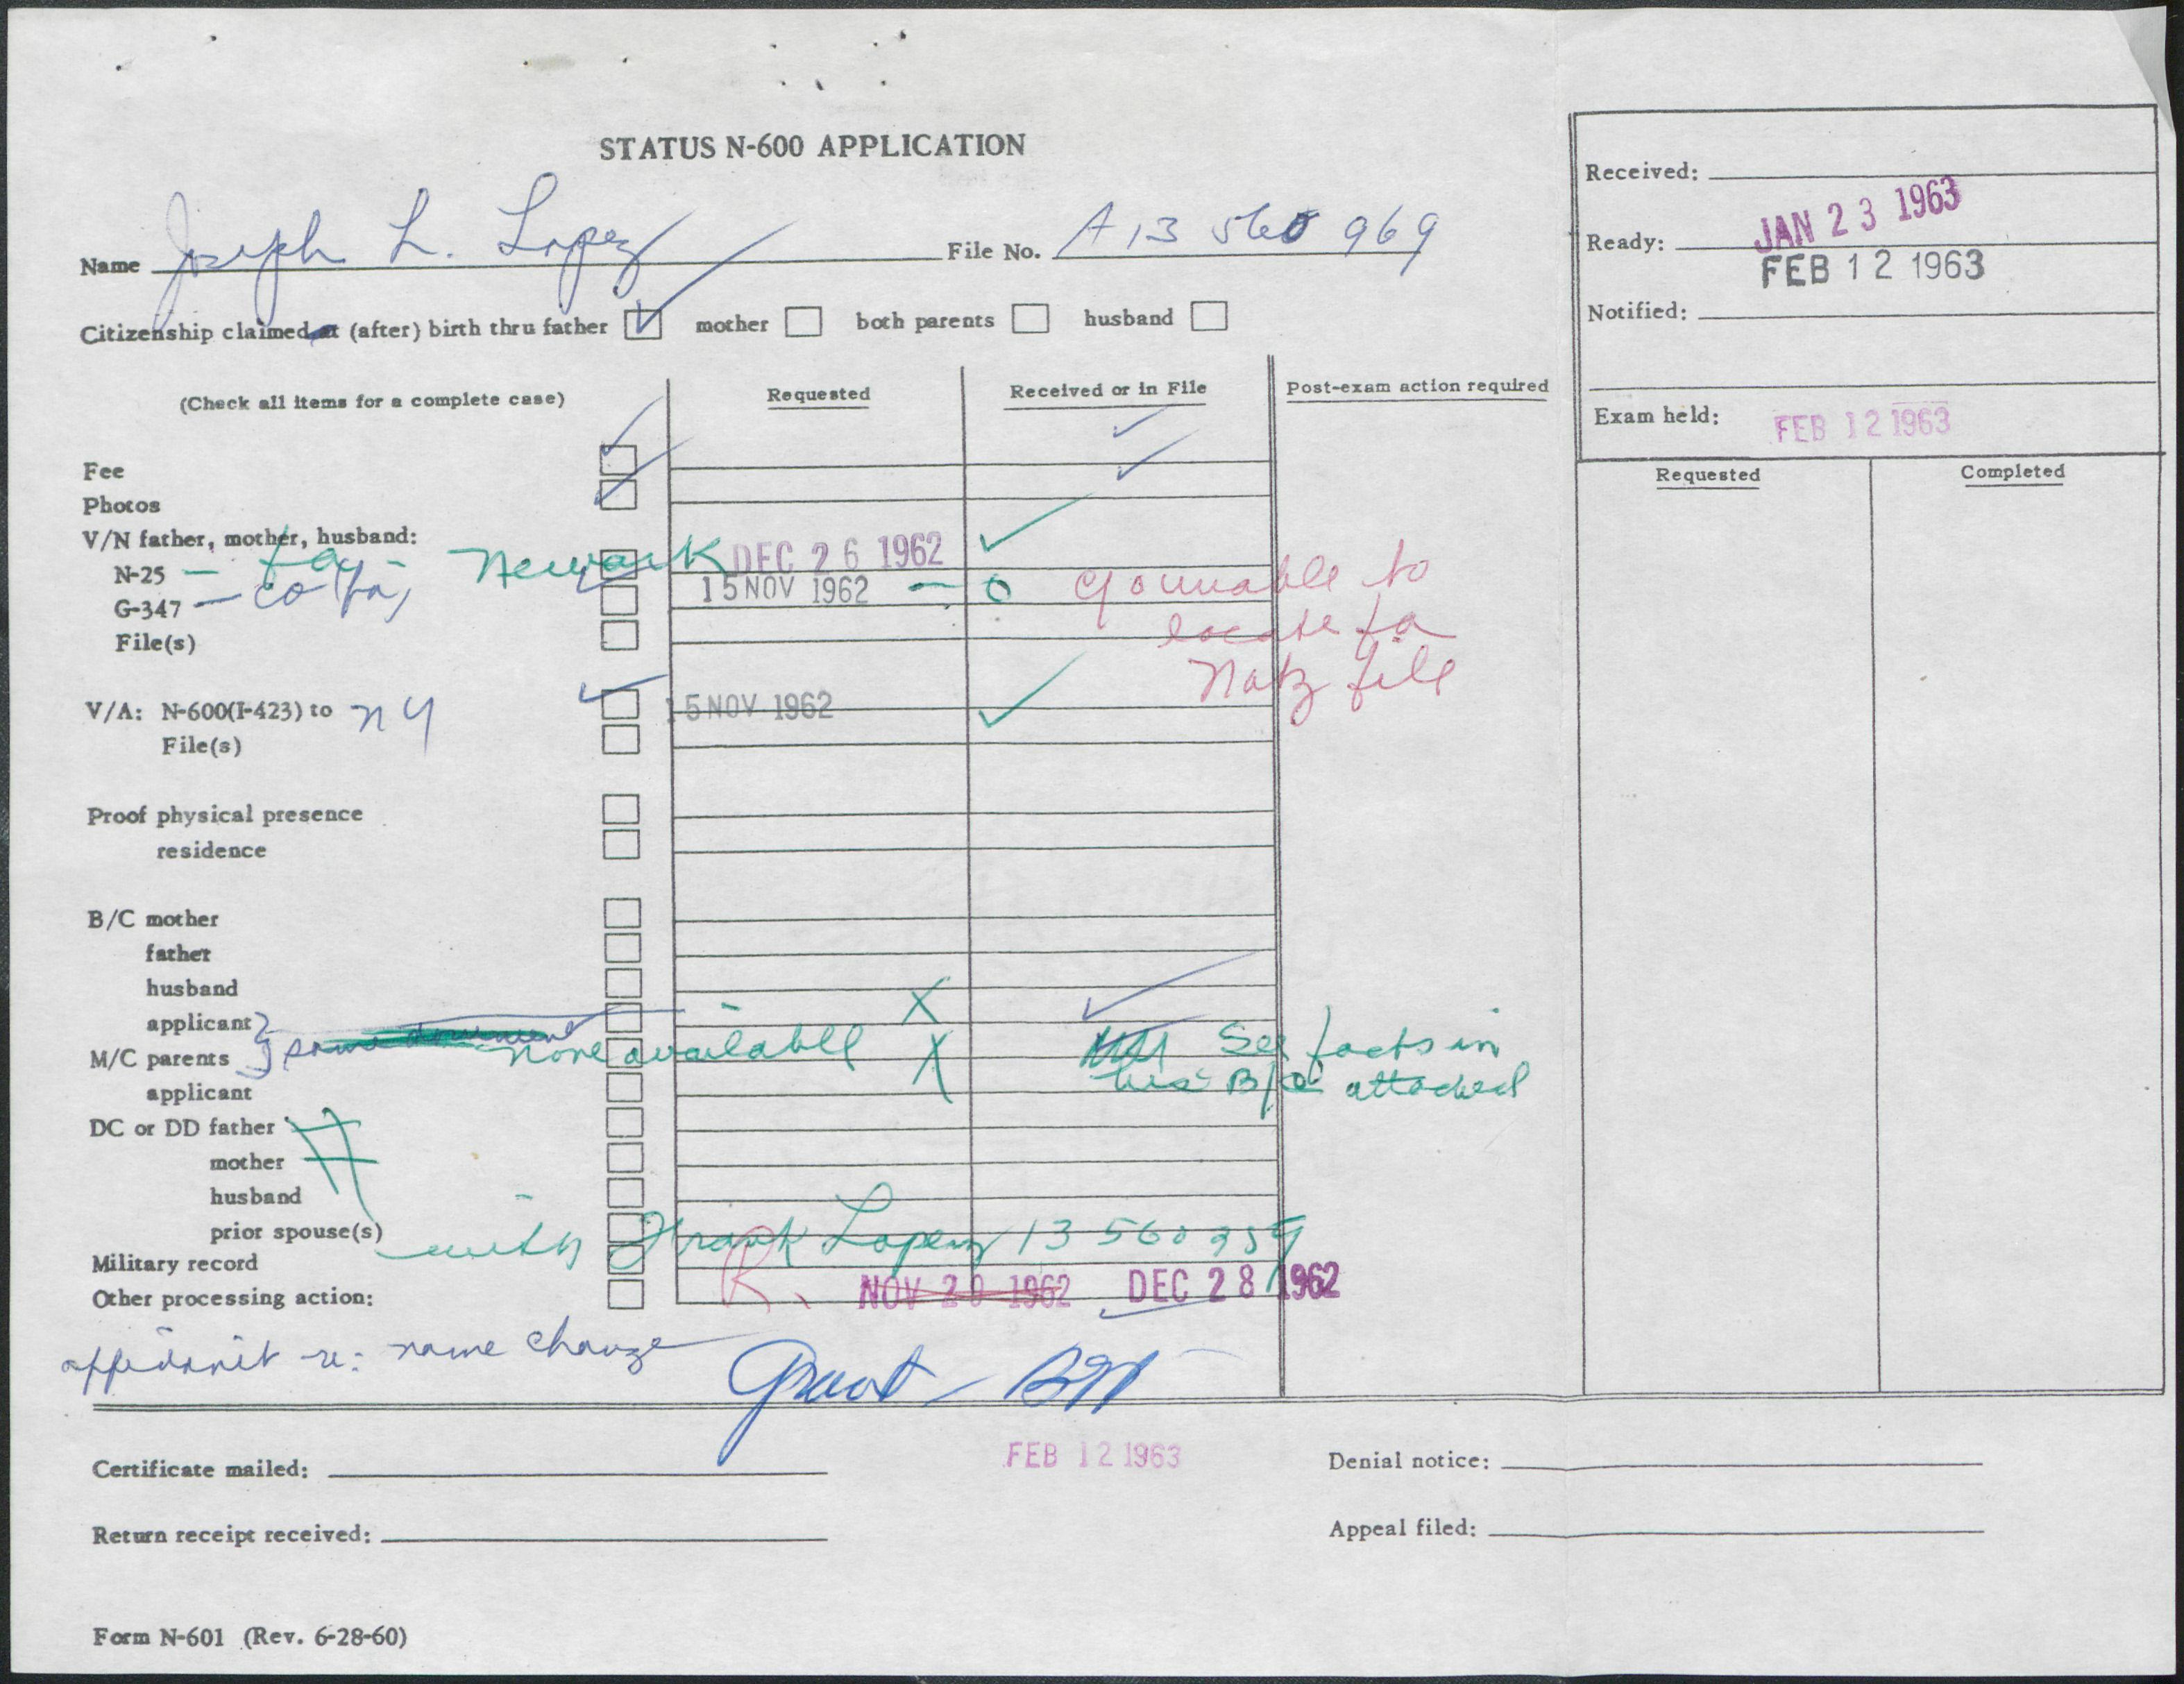 STATUS N-600 APPLICATION
Name Joseph L. Lopez File No. A 13 560 969
Citizenship claimed at (after) birth thru father mother both parents husband
(Check all items for a complete case) Requested Received or in File Post-exam action required
Fee
Photos
V/N father, mother, husband:
N-25 — fa - Newark DEC 26 1962
G-347 — co fa, 15 NOV 1962 — 0 unable to
locate fa
Natz file
File(s)
V/A: N-600(I-423) to NY 15 NOV 1962
File(s)
Proof physical presence
residence
B/C mother
father
husband
applicant X
M/C parents none available X See facts in
his B/C attached
applicant
DC or DD father
mother
husband
prior spouse(s)
with Frank Lopez 13 560 959
Military record
Other processing action: R. NOV 20 1962 DEC 28 1962
affidavit re: name change
Grant —
Certificate mailed: FEB 12 1963 Denial notice:
Return receipt received: Appeal filed:
Form N-601 (Rev. 6-28-60)
Received:
JAN 23 1963
Ready:
FEB 12 1963
Notified:
Exam held: FEB 12 1963
Requested Completed